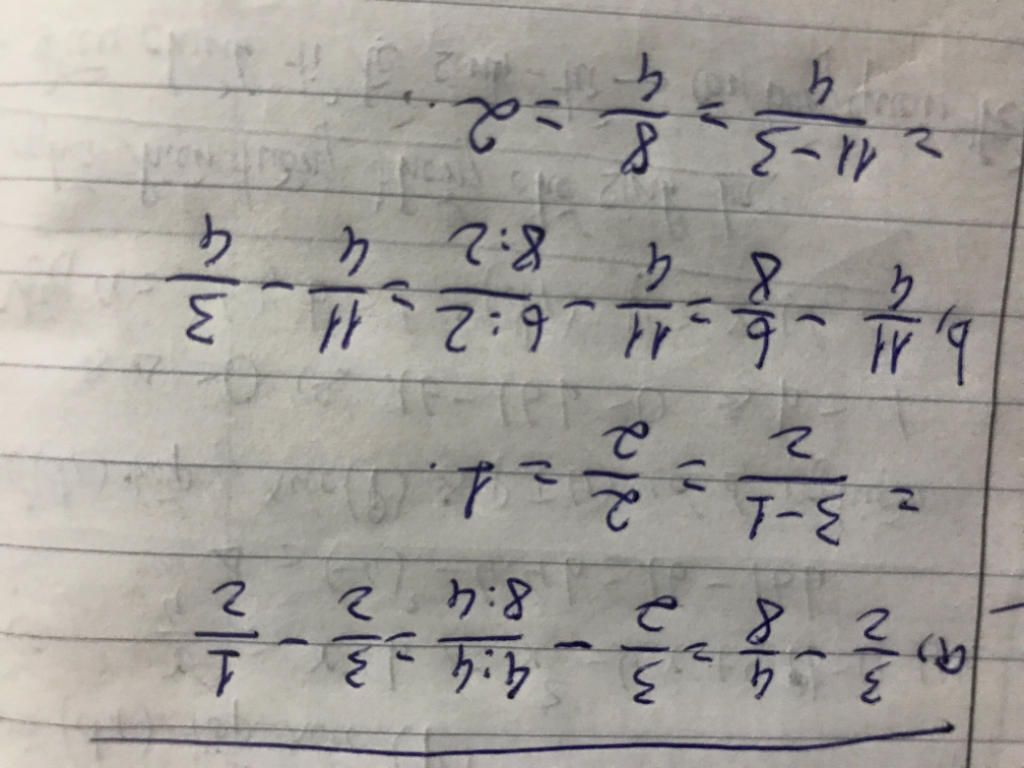 a, 3/2 - 4/8 = 3/2 - 4:4/8:4 = 3/2 - 1/2
= 3-1/2 = 2/2 = 1.
b, 11/4 - 6/8 = 11/4 - 6:2/8:2 = 11/4 - 3/4
= 11-3/4 = 8/4 = 2.